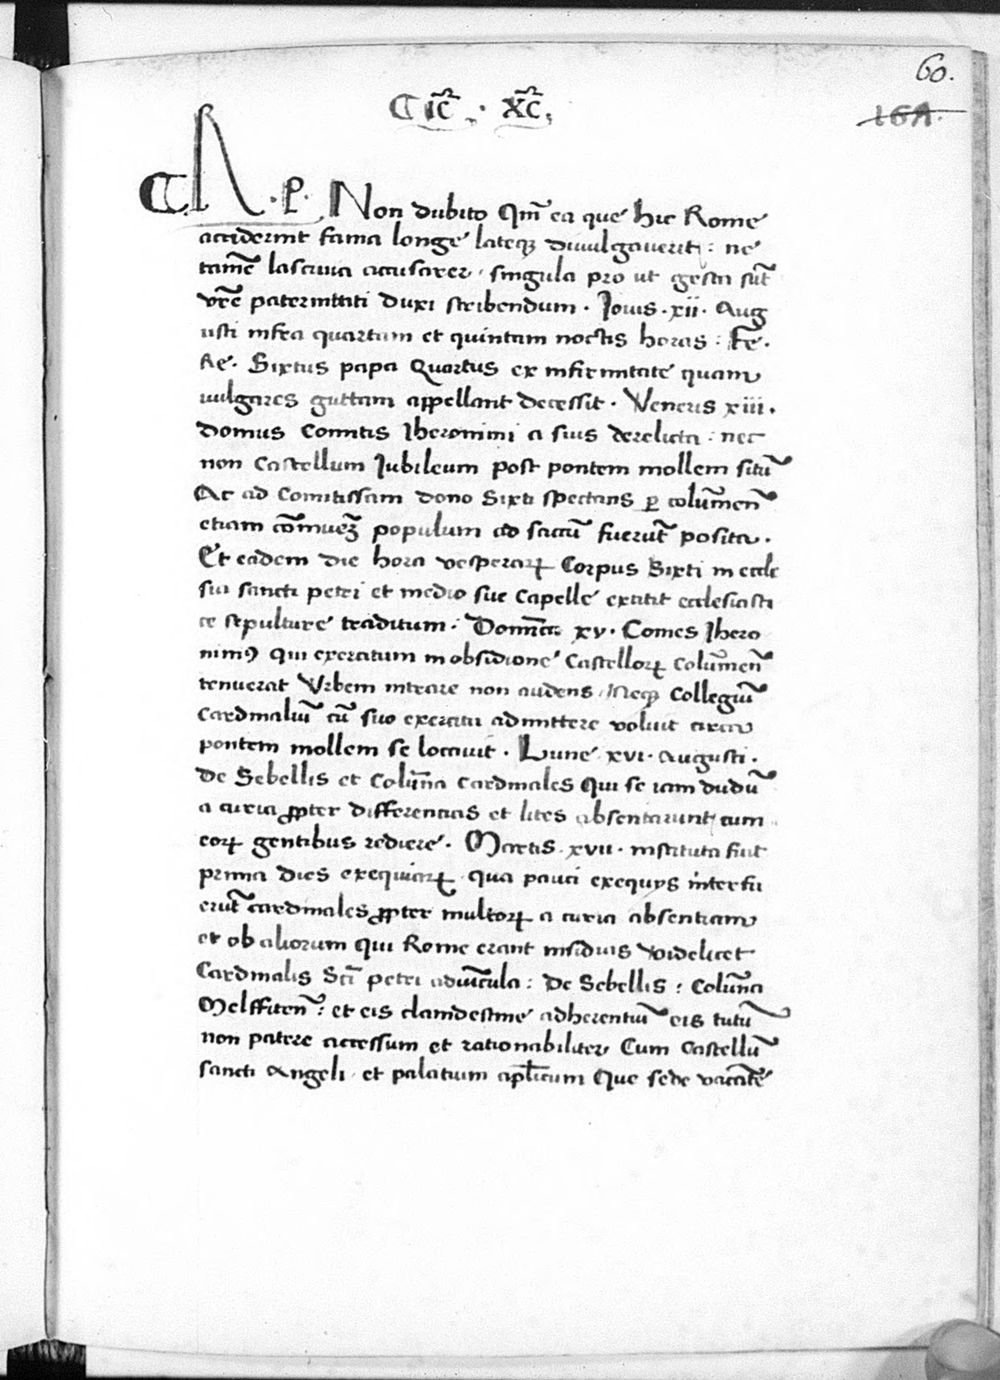 60.
16A.
¶ Ic̄ · Xc̄,
¶ A. P. Non dubito Qm̄ ea que hic Rome
acciderint fama longe lateqȝ divulgaverit : ne
tamē lascivia accusarer, singula pro ut gesta sūt
vr̄e paternitati duxi scribendum . Jovis .xii. Aug
usti infra quartam et quintam noctis horas : Fe.
Re. Sixtus papa Quartus ex infirmitate quam
vulgares guttam appellant decessit . Veneris xiii.
domus Comitis Iheronimi a suis derelicta : nec
non Castellum Jubileum post pontem mollem sitū
Ac ad Comitissam dono Sixti spectans ꝑ colum̄en̄
etiam cōmuēȝ populum ad saccū fuerūt posita .
Et eadem die hora vesperarꝝ Corpus Sixti in eccle
sia sancti petri et medio sue Capelle extitit ecclesiasti
ce sepulture traditum . Domīca xv. Comes Ihero
nimꝰ qui exercitum in obsidione Castellorꝝ Colum̄en̄
tenuerat Urbem intrare non audens, Neqȝ Collegiū
Cardinaliū cū suo exercitu admittere voluit circa
pontem mollem se locavit . Lune xvi. Augusti .
De Sebellis et Colum̄na Cardinales Qui se iam dudū
a curia ꝓpter differentias et lites absentarunt, cum
eorꝝ gentibus rediere . Martis xvii. instituta fuit
prima dies exequiarꝝ qua pauci exequiis interfu
erūt cardinales ꝓpter multorꝝ a curia absentiam
et ob aliorum qui Rome erant insidias Videlicet
Cardinalis Sc̄i petri advīcula : De Sebellis : Colum̄na
Melffiten̄ : et eis clamdestine adherentiū eis tutū
non patere accessum et rationabiliter Cum Castellū
sancti Angeli, et palatium apl̄icum Que sede vacātē